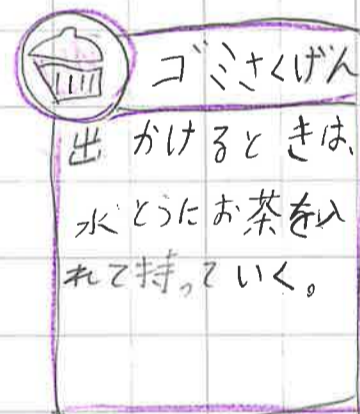 ゴミさくげん
出かけるときは、
水とうにお茶を入
れて持っていく。